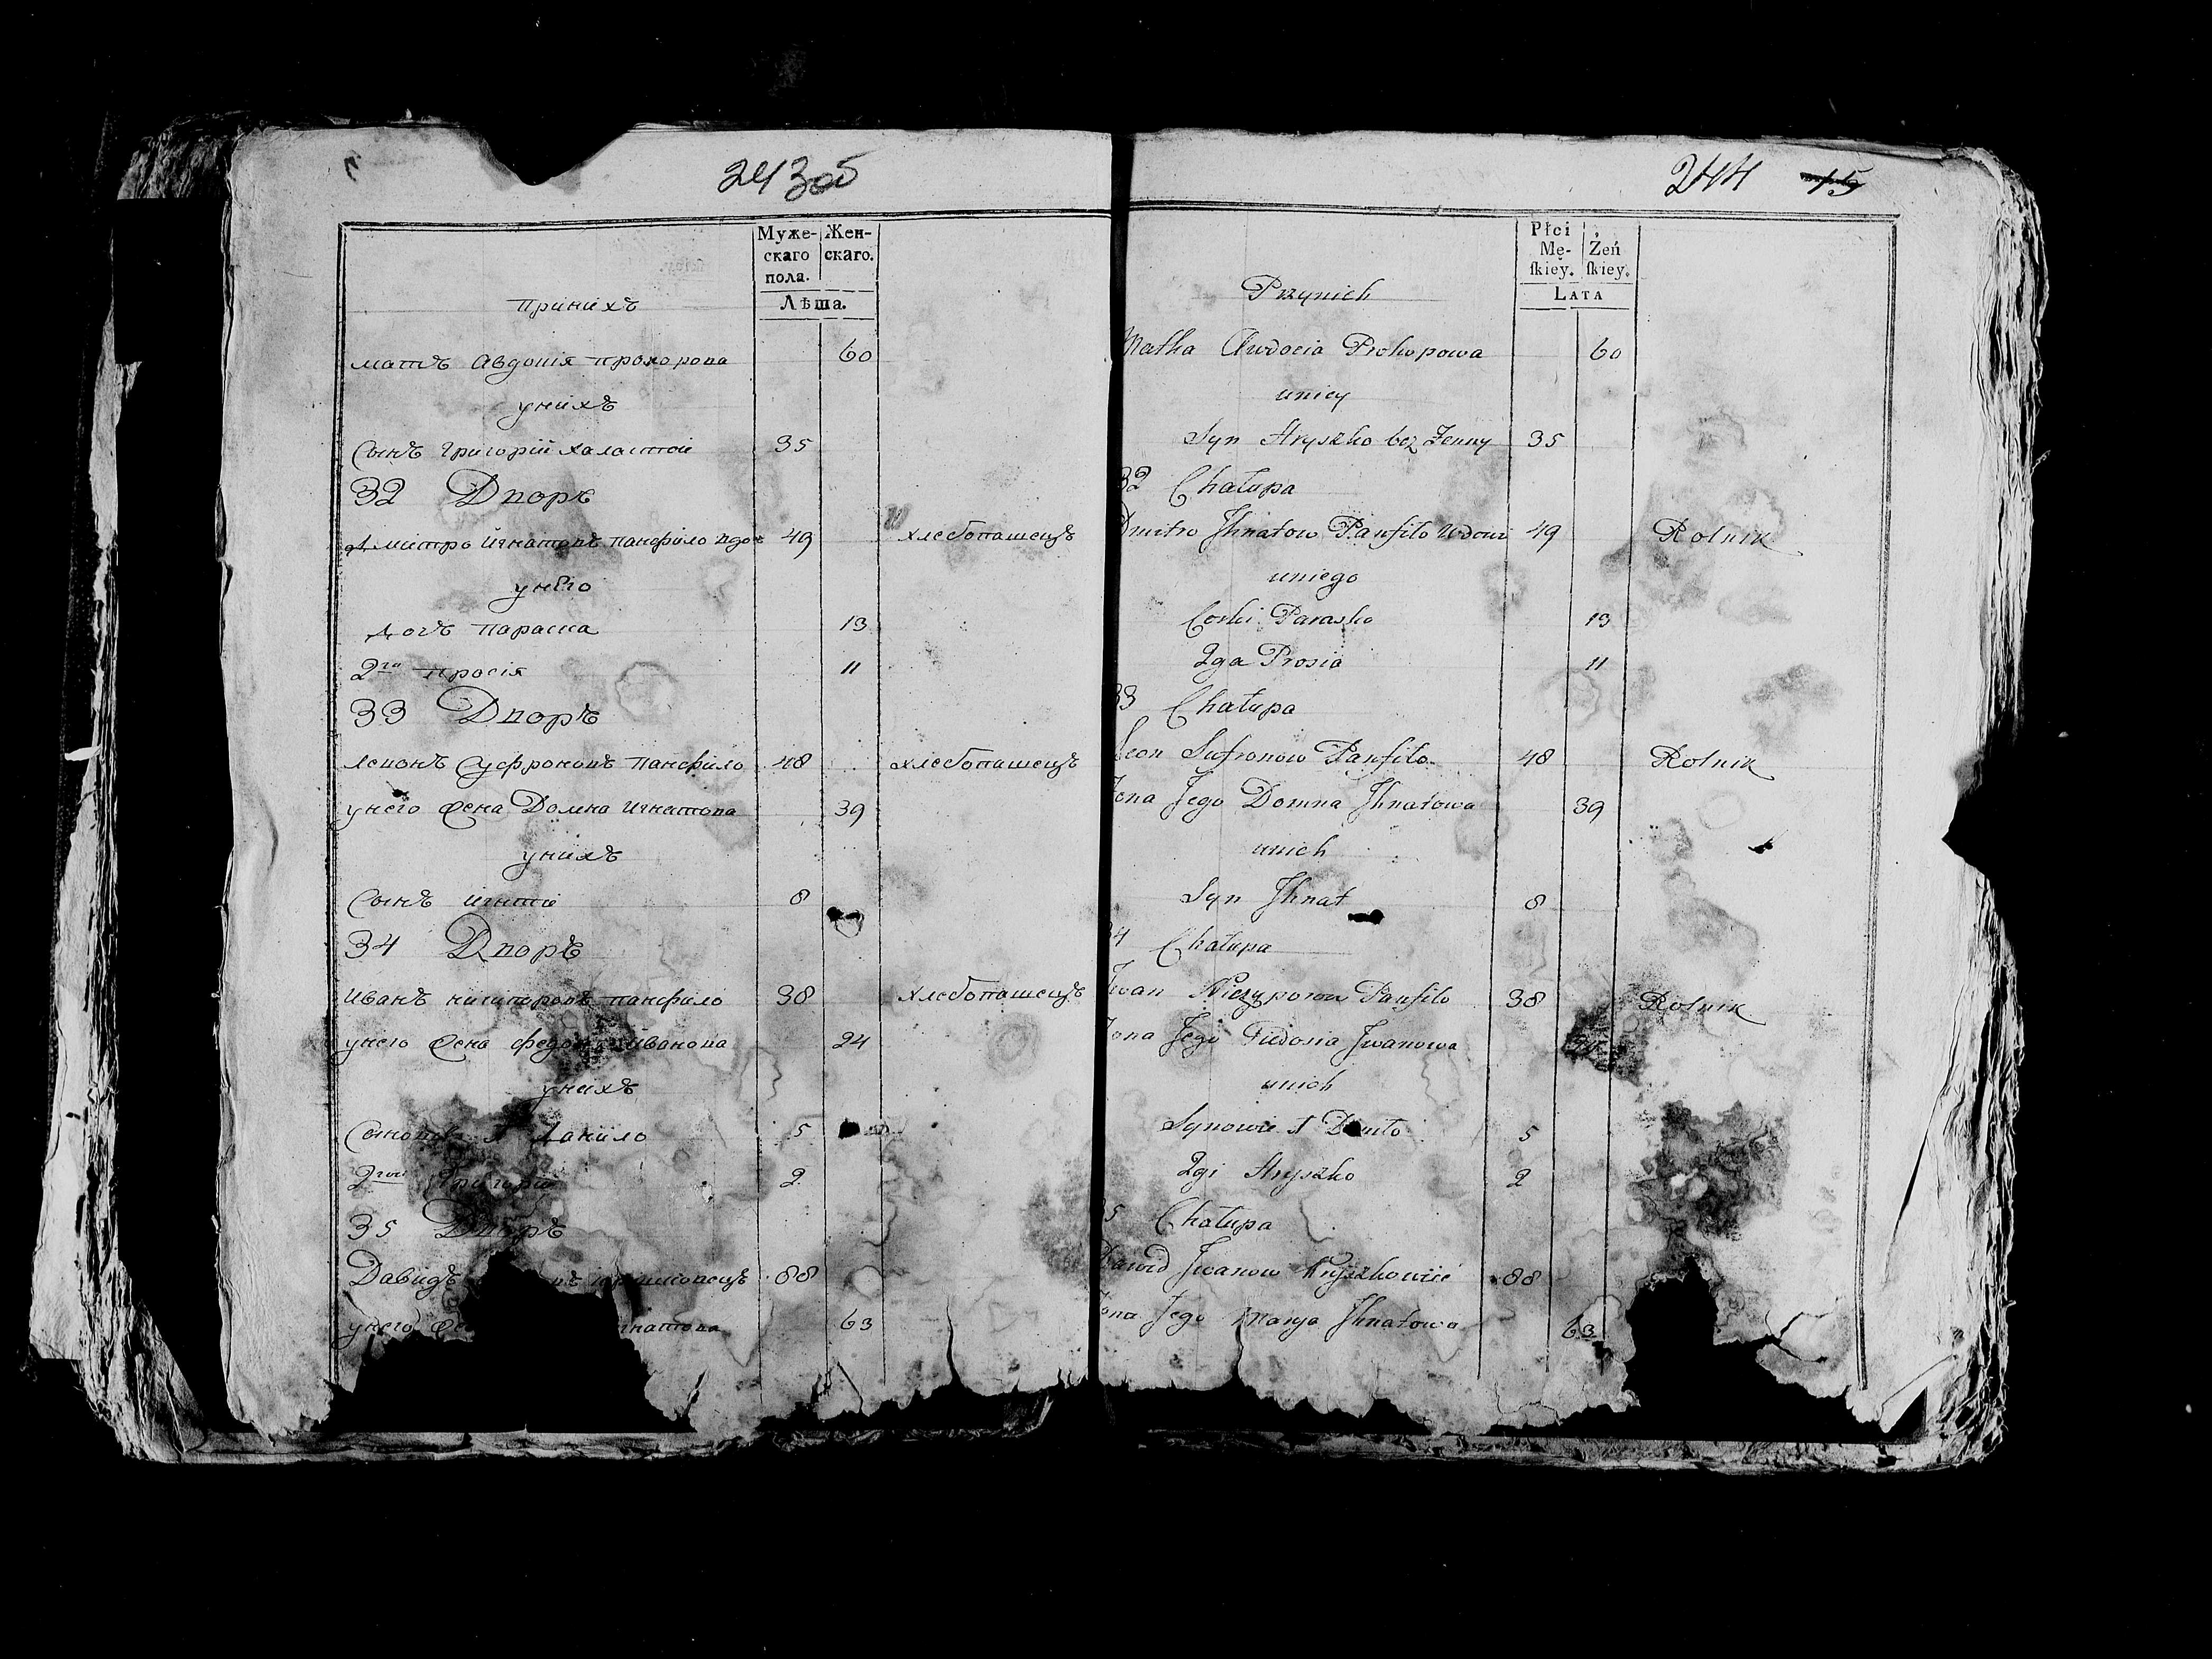 243об
Муже-
скаго
пола.
Жен-
скаго.
Лѣта.
принихъ
матъ Авдопія прокорова 60
унихъ
Сынъ Григорій халастои 35
32 Дворъ
Дмитро Игнатовъ панфило вдов 49 хлебопашецъ
унего
Дочъ параска 13
2га просія 11
33 Дворъ
леионъ Суфроновъ панфило 48 хлебопашецъ
унего Жена Домна Игнатова 39
унихъ
Сынъ Игнатіи 8
34 Дворъ
Иванъ нычипоровъ панфило 38 хлебопашецъ
унего Жена Иванова 24
унихъ
1 Данило 5
2гои Григорій 2
35 Дворъ
Давидъ 88
унего 63
244 15
Płci
Mę-
skiey.
Żeń
skiey.
Lata
Przynich
Matka Awdocia Prokopowa 60
unicy
Syn Hryszko bez Zenny 35
32 Chałupa
Dmitro Jhnatow Panfiło Wdowi 49 Rolnik
uniego
Corki Paraska 13
2ga Prosia 11
33 Chałupa
Leon Sufronow Panfiło 48 Rolnik
Zona Jego Domna Jhnatowa 39
unich
Syn Jhnat 8
34 Chałupa
Jwan Niczyporow Panfiło 38 Rolnik
Zona Jego Fiedosia Jwanowa
unich
Synowie 1 5
2gi Hryszko 2
35 Chałupa
Dawid Jwanow 88
Zona Jego Marya Jhnatowa 63